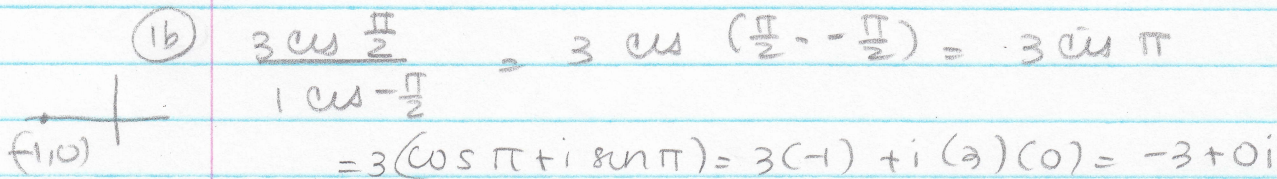 16 3 cis π/2 / 1 cis -π/2 = 3 cis (π/2 - -π/2) = 3 cis π
(-1,0)
= 3(cos π + i sin π) = 3(-1) + i (3)(0) = -3 + 0i